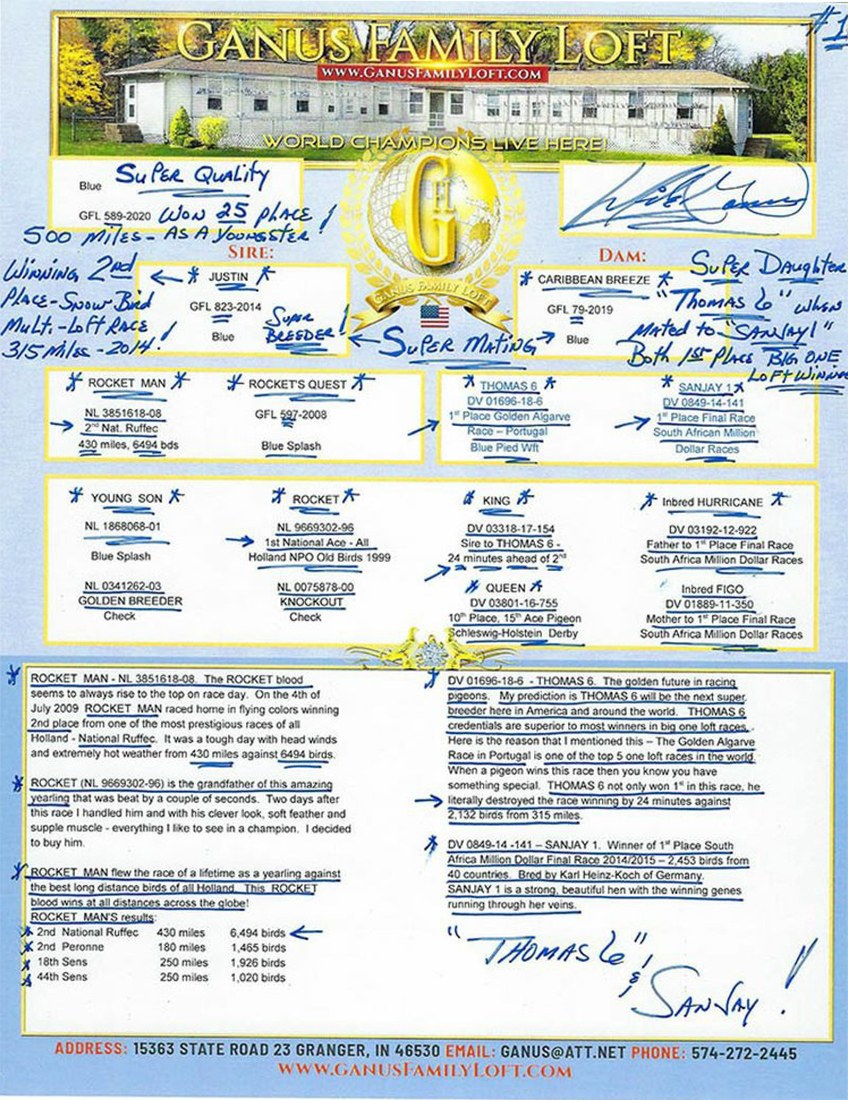 #1
GANUS FAMILY LOFT
WWW.GANUSFAMILYLOFT.COM
WORLD CHAMPIONS LIVE HERE!
Blue SUPER QUALITY
GFL 589-2020 WON 25 PLACE!
500 MILES- AS A YOUNGSTER!
G
GANUS FAMILY LOFT
SIRE:
WINNING 2nd
PLACE-SNOW BIRD
MULT.-LOFT RACE
315 MILES-2014!
JUSTIN
GFL 823-2014
Blue
SUPER
BREEDER!
SUPER MATING
DAM:
CARIBBEAN BREEZE
GFL 79-2019
Blue
SUPER DAUGHTER
"THOMAS 6" WHEN
MATED TO "SANJAY1"
BOTH 1ST PLACE BIG ONE
LOFT WINN
ROCKET MAN
NL 3851618-08
2nd Nat. Ruffec
430 miles, 6494 bds
ROCKET'S QUEST
GFL 597-2008
Blue Splash
THOMAS 6
DV 01696-18-6
1st Place Golden Algarve
Race – Portugal
Blue Pied Wft
SANJAY 1
DV 0849-14-141
1st Place Final Race
South African Million
Dollar Races
YOUNG SON
NL 1868068-01
Blue Splash
NL 0341262-03
GOLDEN BREEDER
Check
ROCKET
NL 9669302-96
1st National Ace - All
Holland NPO Old Birds 1999
NL 0075878-00
KNOCKOUT
Check
KING
DV 03318-17-154
Sire to THOMAS 6 -
24 minutes ahead of 2nd
QUEEN
DV 03801-16-755
10th Place, 15th Ace Pigeon
Schleswig-Holstein Derby
Inbred HURRICANE
DV 03192-12-922
Father to 1st Place Final Race
South Africa Million Dollar Races
Inbred FIGO
DV 01889-11-350
Mother to 1st Place Final Race
South Africa Million Dollar Races
ROCKET MAN - NL 3851618-08. The ROCKET blood
seems to always rise to the top on race day. On the 4th of
July 2009 ROCKET MAN raced home in flying colors winning
2nd place from one of the most prestigious races of all
Holland - National Ruffec. It was a tough day with head winds
and extremely hot weather from 430 miles against 6494 birds.
ROCKET (NL 9669302-96) is the grandfather of this amazing
yearling that was beat by a couple of seconds. Two days after
this race I handled him and with his clever look, soft feather and
supple muscle - everything I like to see in a champion. I decided
to buy him.
ROCKET MAN flew the race of a lifetime as a yearling against
the best long distance birds of all Holland. This ROCKET
blood wins at all distances across the globe!
ROCKET MAN'S results:
2nd National Ruffec 430 miles 6,494 birds
2nd Peronne 180 miles 1,465 birds
18th Sens 250 miles 1,926 birds
44th Sens 250 miles 1,020 birds
DV 01696-18-6 - THOMAS 6. The golden future in racing
pigeons. My prediction is THOMAS 6 will be the next super
breeder here in America and around the world. THOMAS 6
credentials are superior to most winners in big one loft races.
Here is the reason that I mentioned this – The Golden Algarve
Race in Portugal is one of the top 5 one loft races in the world.
When a pigeon wins this race then you know you have
something special. THOMAS 6 not only won 1st in this race, he
literally destroyed the race winning by 24 minutes against
2,132 birds from 315 miles.
DV 0849-14 -141 – SANJAY 1. Winner of 1st Place South
Africa Million Dollar Final Race 2014/2015 – 2,453 birds from
40 countries. Bred by Karl Heinz-Koch of Germany.
SANJAY 1 is a strong, beautiful hen with the winning genes
running through her veins.
"THOMAS 6"
&
SANJAY!
ADDRESS: 15363 STATE ROAD 23 GRANGER, IN 46530 EMAIL: GANUS@ATT.NET PHONE: 574-272-2445
WWW.GANUSFAMILYLOFT.COM